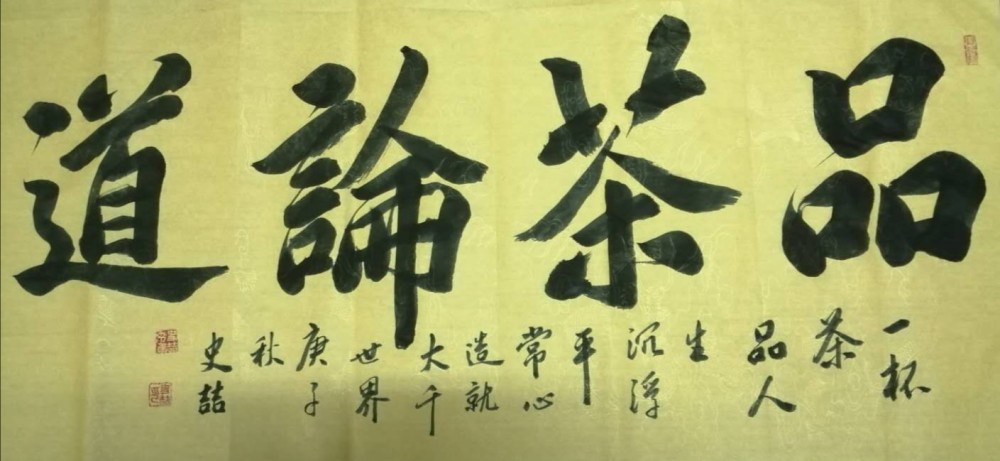 品茶論道
一杯
茶
品人
生
沉浮
平
常心
造就
大千
世界
庚子
秋
史喆